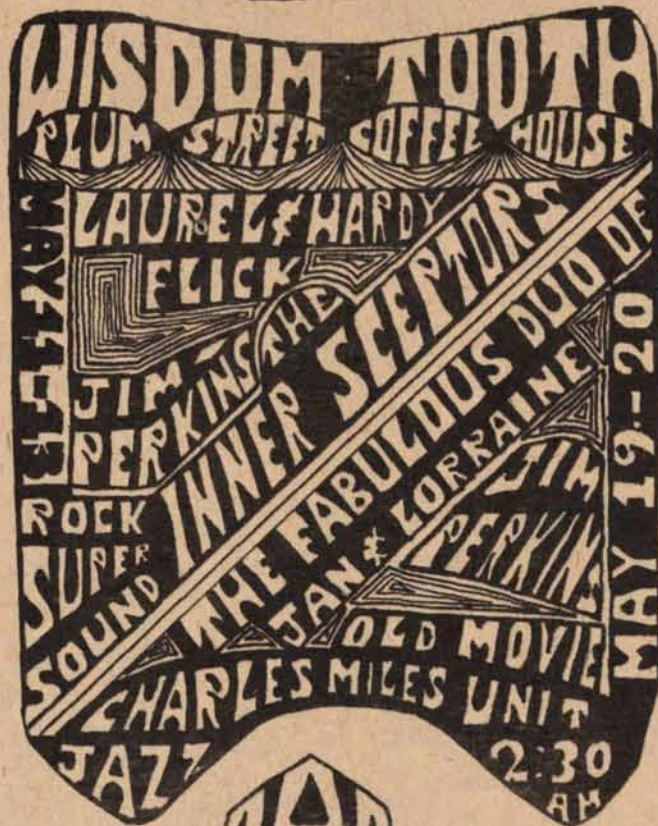 WISDUM TOOTH
PLUM STREET COFFEE HOUSE
MAY
LAUREL & HARDY
FLICK
JIM
PERKINS
THE
INNER SCEPTORS
ROCK
SUPER
SOUND
THE FABULOUS DUO OF
JAN & LORRAINE
JIM
PERKINS
OLD MOVIE
MAY 19-20
CHARLES MILES UNIT
JAZZ 2:30
AM